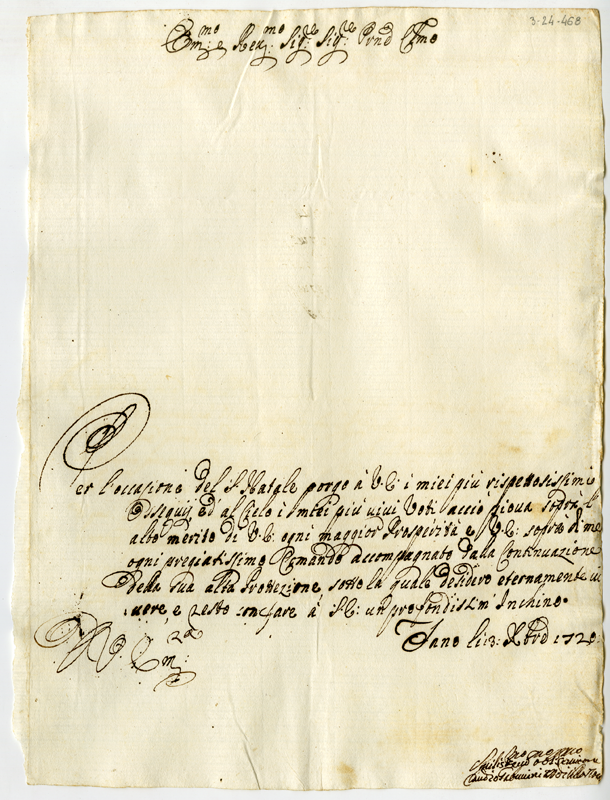 3-24-468
Em:mo e Rev:mo Sig:re Sig:re Prnd Cmo
Per l'occasione del S. Natale porgo à V.E: i miei più rispettosissimi
Ossequij, ed al Cielo i miei più vivi Voti acciò piova sopra l'
alto merito di V.E: ogni maggior Prosperità e V.E: sopra di me
ogni pregiatissimo Comando accompagnato dalla Continuazione
della sua alta Protezione, sotto la quale desidero eternamente vi
vere, e resto con fare à V.E: un profondissim' Inchino.
Fano li:3: Xbre 1720.
D. V. Em:za